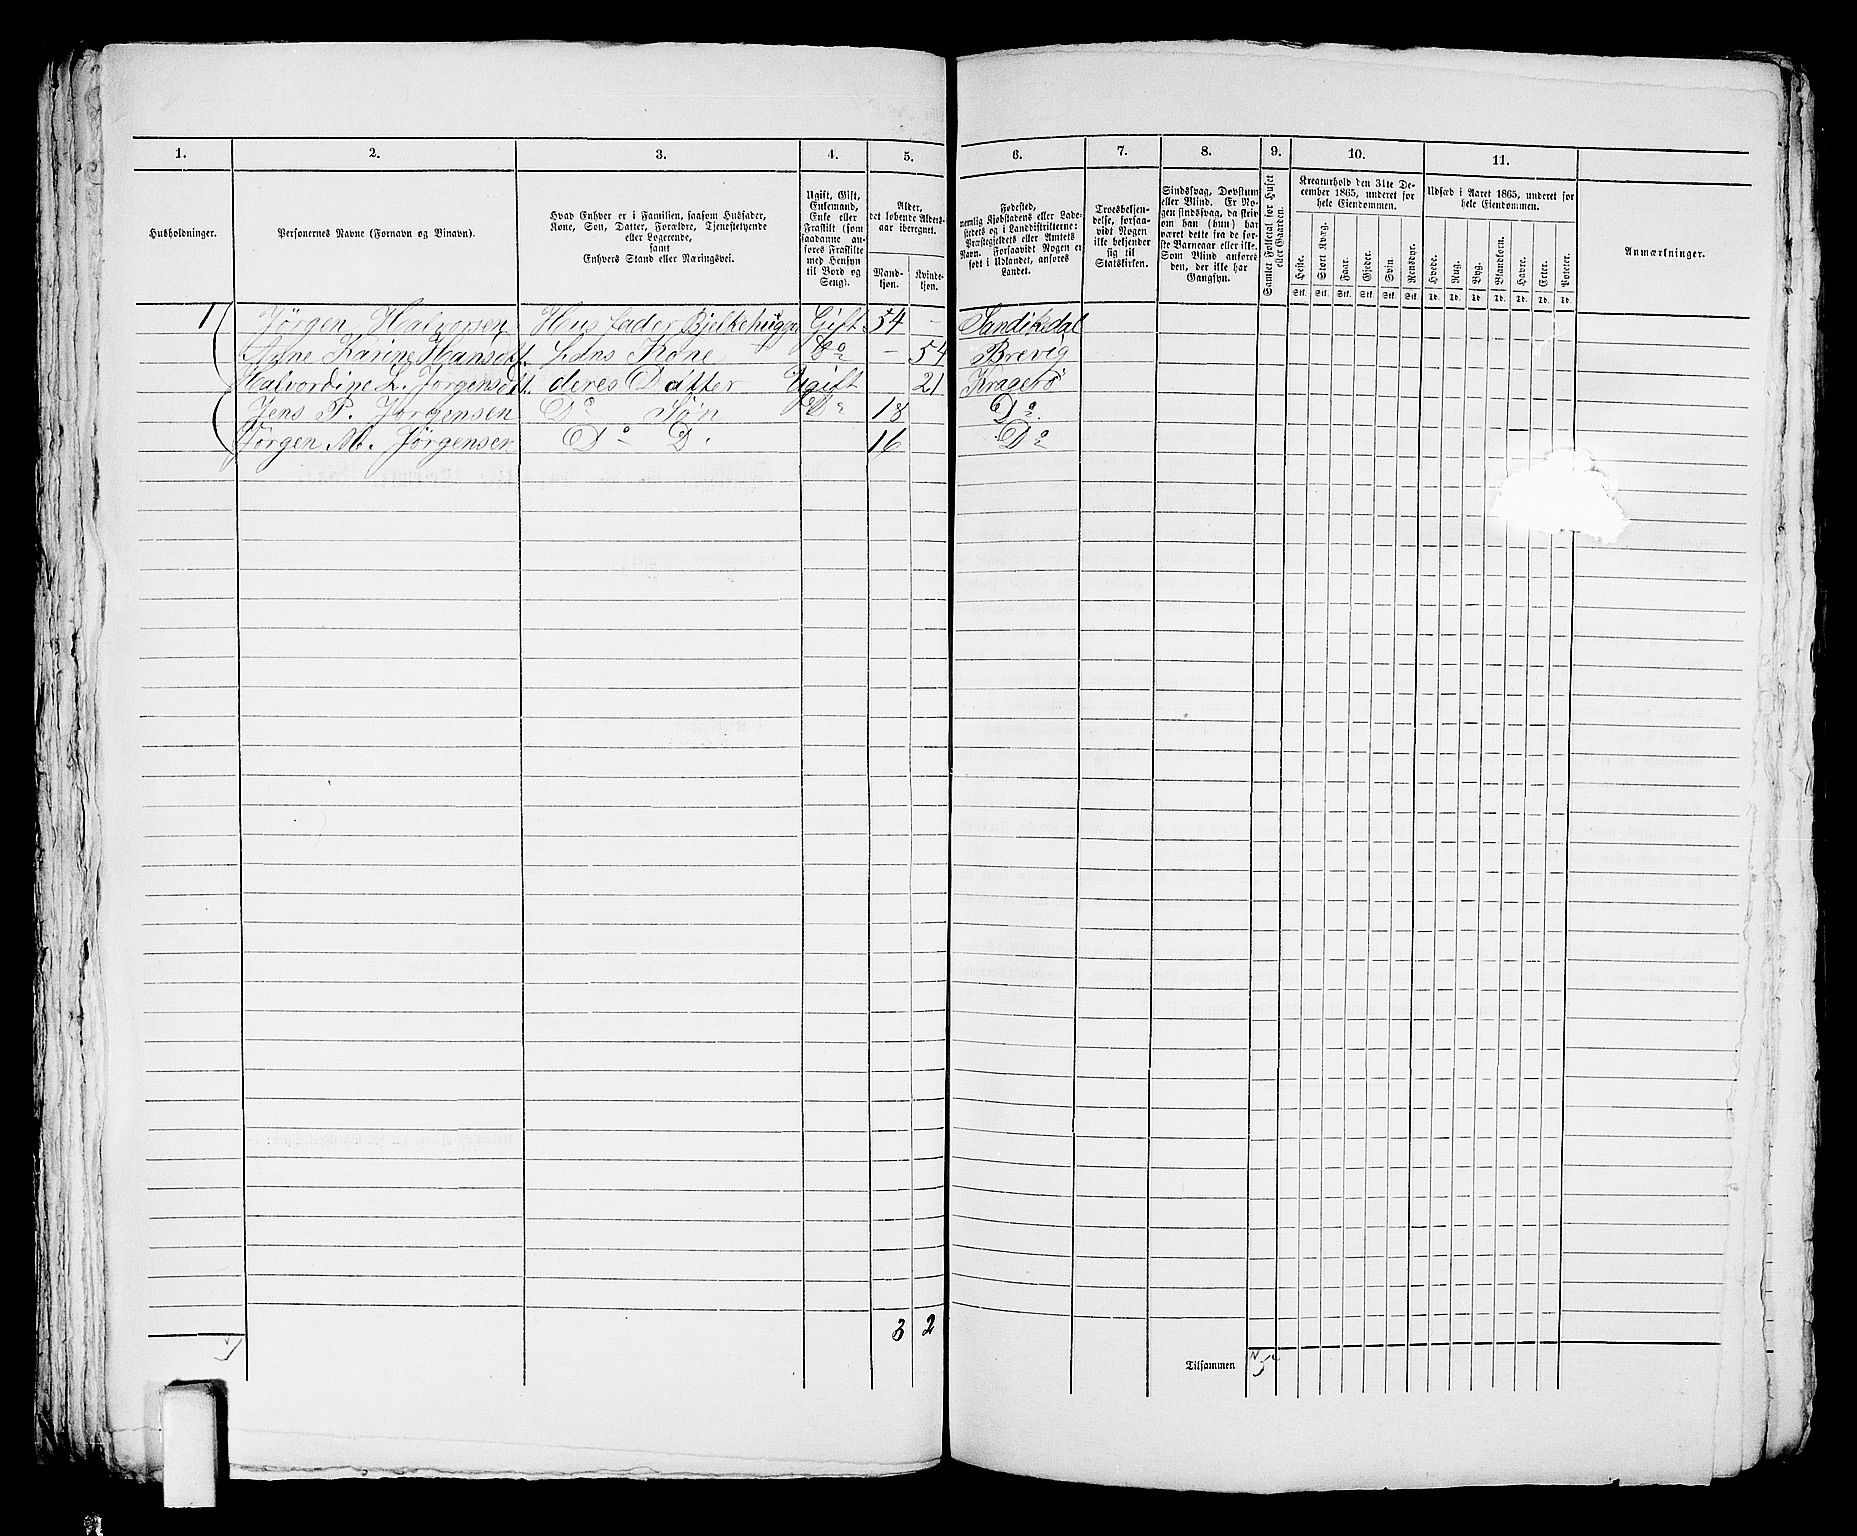 1. 2. 3. 4. 5. 6. 7. 8. 9. 10. 11.
Husholdninger.
Personernes Navne (Fornavn og Binavn).
Hvad Enhver er i Familien, saasom Husfader,
Kone, Søn, Datter, Forældre, Tjenestetyende
eller Logerende,
samt
Enhvers Stand eller Næringsvei.
Ugift, Gift,
Enkemand,
Enke eller
Fraskilt (som
saadanne an-
føres Fraskilte
med Hensyn
til Bord og
Seng).
Alder,
det løbende Alders-
aar iberegnet.
Mand-
kjøn.
Kvinde-
kjøn.
Fødested,
nemlig Kjøbstadens eller Lade-
stedets og i Landdistrikterne:
Præstegjeldets eller Amtets
Navn. Forsaavidt Nogen er
født i Udlandet, anføres
Landet.
Troesbekjen-
delse, forsaa-
vidt Nogen
ikke bekjender
sig til
Statskirken.
Sindssvag, Døvstum
eller Blind. Er No-
gen sindssvag, da skriv
om han (hun) har
været dette fra de før-
ste Barneaar eller ikke.
Som Blind anføres
den, der ikke har
Gangsyn.
Samlet Folketal for Huset
eller Gaarden.
Kreaturhold den 31te De-
cember 1865, underet for
hele Eiendommen.
Heste. Stort Kvæg. Faar. Gjeder. Svin. Rensdyr.
Stk. Stk. Stk. Stk. Stk. Stk.
Udsæd i Aaret 1865, underet for
hele Eiendommen.
Hvede. Rug. Byg. Blandkorn. Havre. Erter. Poteter.
Td. Td. Td. Td. Td. Td. Td.
Anmærkninger.
1 Jörgen Halvorsen Husfader Bjelkehugger Gift 54 – Sandikedal
Karine Hansdt. hans Kone Do – 54 Brevig
Halvordine L. Jörgensdt. deres Datter Ugift 21 Kragerö
Jens P. Jörgensen Do Søn Do 18 Do
Jörgen M. Jörgensen Do D. 16 Do
3 2
Tilsammen 5